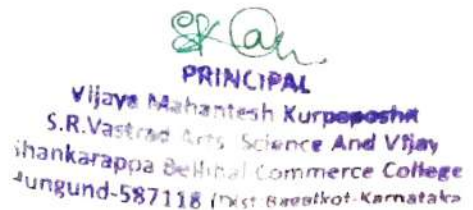 PRINCIPAL
Vijaya Mahantesh
S.R.Vastrad Arts Science And Vijay
hankarappa Bellihal Commerce College
ungund-587118 (Dist Bagalkot-Karnataka